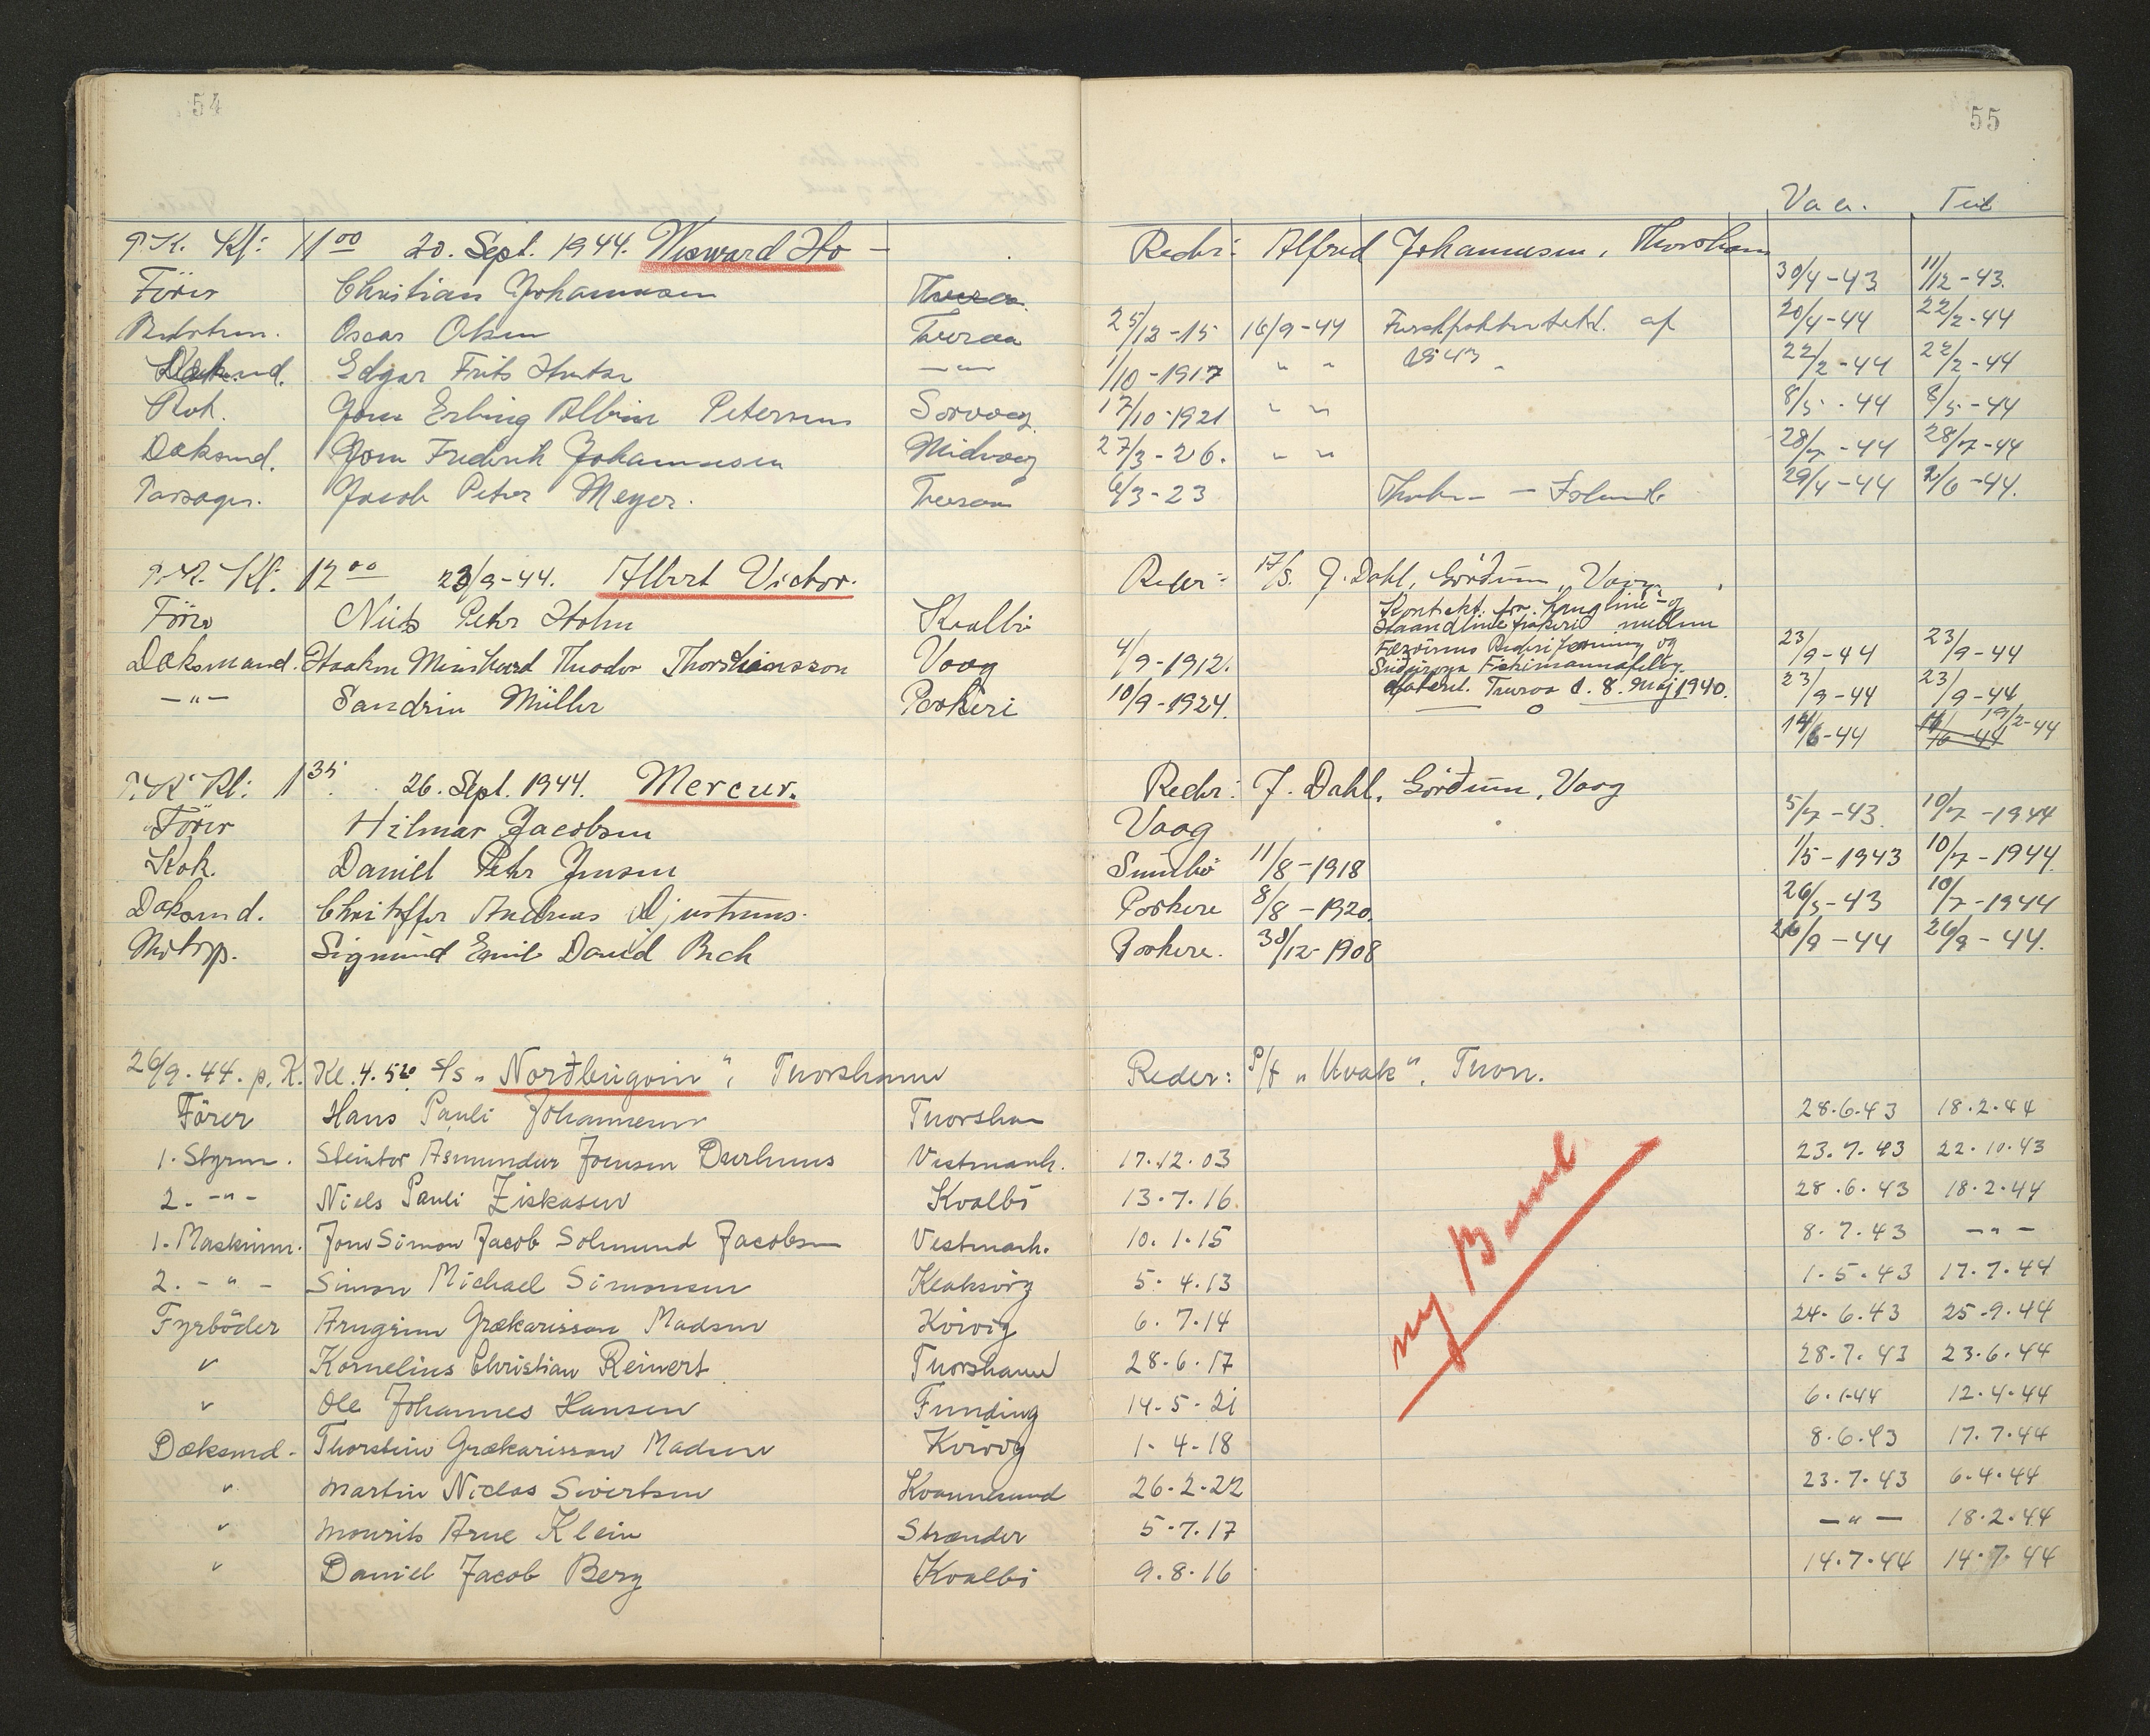 54
55
Til
Kl: 11 00 20. Sept. 1944. Ho - Alfred Johannesen, Thorshavn
Förer Christian Johannesen 30/4-43 11/12-43.
Oscar Olsen Tveraa 25/12-15 16/9-44 af 20/4-44 22/2-44
Edgar Frits -"- 1/10-1917 " " 22/2-44 22/2-44
Kok. Erling Albin Petersen Sorvaag 17/10-1921 " " 8/5-44 8/5-44
Daksmd. Fredrik Johannesen Midvaag 27/3-26. " " 28/7-44 28/7-44
Passager. Jacob Peter Meyer. Tveraa 6/3-23 29/4-44 2/6-44.
Kl: 12 00 23/9-44. Albert Victor. Reder: J. Dahl, Görðum, Vaag
Förer Niels Peter Holm Kvalbö
Kontrakt. for Langline- og
Haandlinefiskeri mellem
Daksmand. Haakon Theodor Vaag 4/9-1912. Færöernes Rederiforening og 23/9-44 23/9-44
Suðuroya Fiskimannafelag
-"- Sandrin Müller Porkeri 10/9-1924. dateret. Tveraa d. 8. Maj 1940. 23/9-44 23/9-44
14/6-44 19/2-44
Kl: 1 35. 26. Sept. 1944. Mercur. Reder: J. Dahl, Görðum, Vaag
Förer Hilmar Jacobsen Vaag 5/7-43. 10/7-1944
Kok. Daniel Petr Jensen Sumbö 11/8-1918 1/5-1943 10/7-1944.
Daksmd. Andreas Porkere 8/8-1920. 26/5-43 10/7-1944
Sigmund Emil David Bech Porkere. 30/12-1908 26/9-44 26/9-44.
26/9.44. p. K. Kl. 4.50 s/s "Norðbúgvin", Thorshavn Reder: P/f "Kvak", Thorn.
Förer Hans Pauli Johannesen Thorshavn 28.6.43 18.2.44
1. Styrm. Steintor Asmundur Joensen Durhuus Vestmanh. 17.12.03 23.7.43 22.10.43
2. -"- Niels Pauli Ziskasen Kvalbö 13.7.16. 28.6.43 18.2.44
1. Maskinm. Jens Simon Jacob Solmund Jacobsen Vestmanh. 10.1.15 8.7.43 -"-
2. -"- Simon Michael Simonsen Klaksvig 5.4.13 1.5.43 17.7.44
Fyrböder Arngrim Grækarisson Madsen Kvivig 6.7.14 24.6.43 25.9.44
" Kornelius Christian Reinert Thorshavn 28.6.17 28.7.43 23.6.44
" Ole Johannes Hansen Funding 14.5.21 6.1.44 12.4.44
Dæksmd. Thorstein Grækarisson Madsen Kvivig 1.4.18 8.6.43 17.7.44
" Martin Niclas Sivertsen Kvannesund 26.2.22 23.7.43 6.4.44
" Mourits Arne Klein Strænder 5.7.17 -"- 18.2.44
" Daniel Jacob Berg Kvalbö 9.8.16 14.7.44 14.7.44
ny